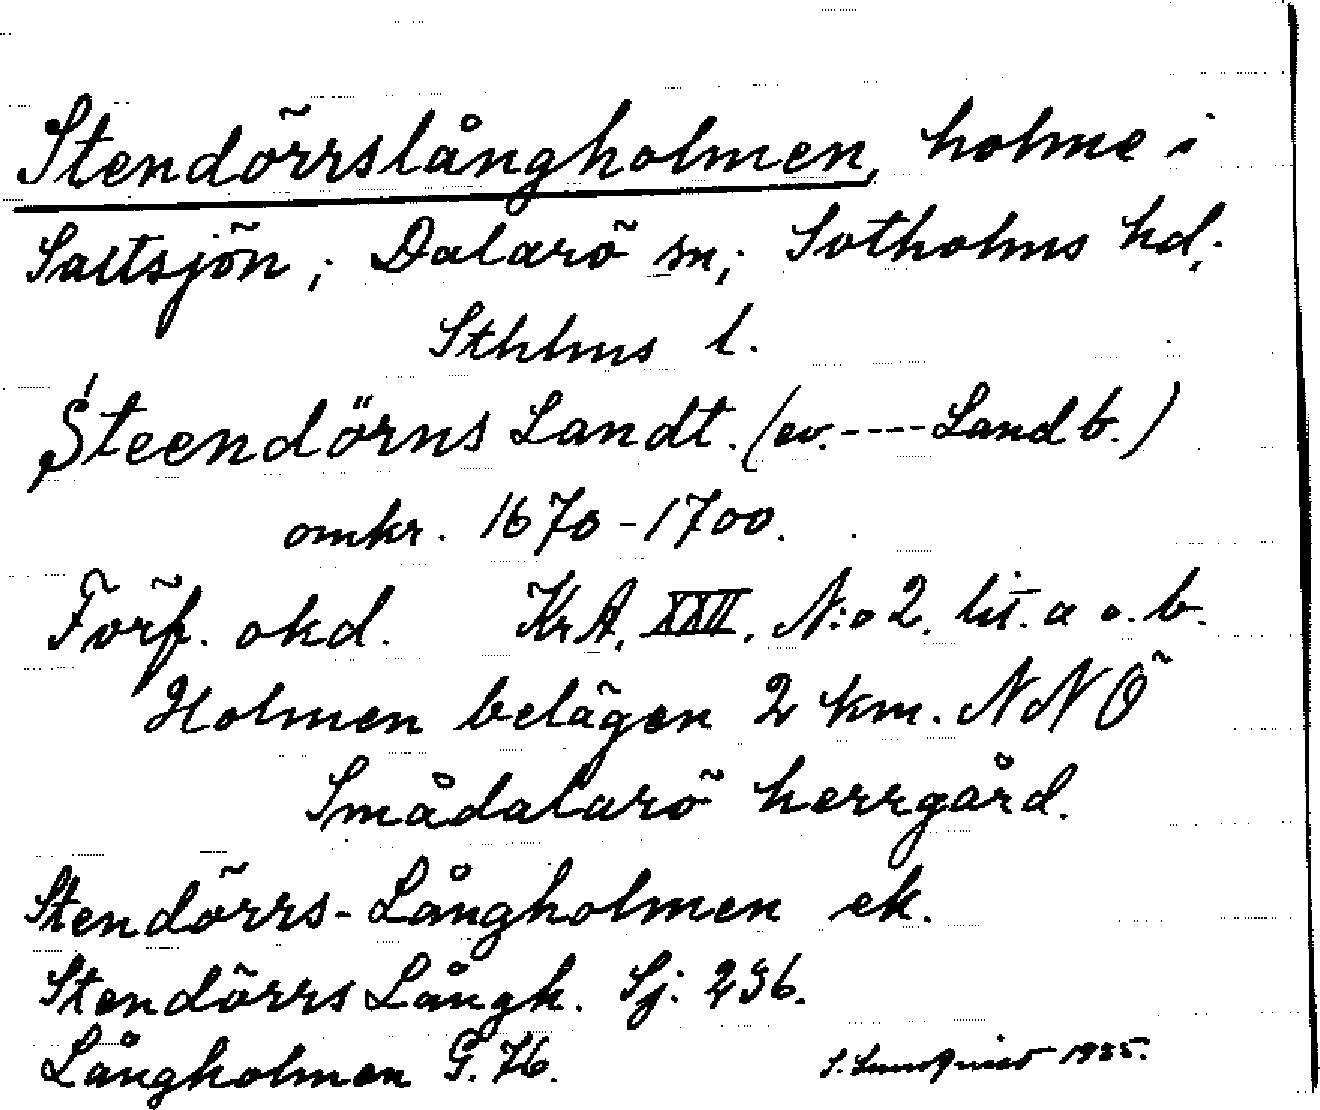 Stendörrslångholmen, holme i
Saltsjön; Dalarö sn; Sotholms hd;
Sthlms l.
Steendörns Landt. (ev. ---- Land b.)
omkr. 1670-1700.
Förf. okd. KrA. XXII. N:o 2. lit. a o. b.
Holmen belägen 2 km. NNÖ
Smådalarö herrgård.
Stendörrs-Långholmen ek.
Stendörrs Långh. Sj: 236.
Långholmen G. 76.
S. Lundqvist 1935.